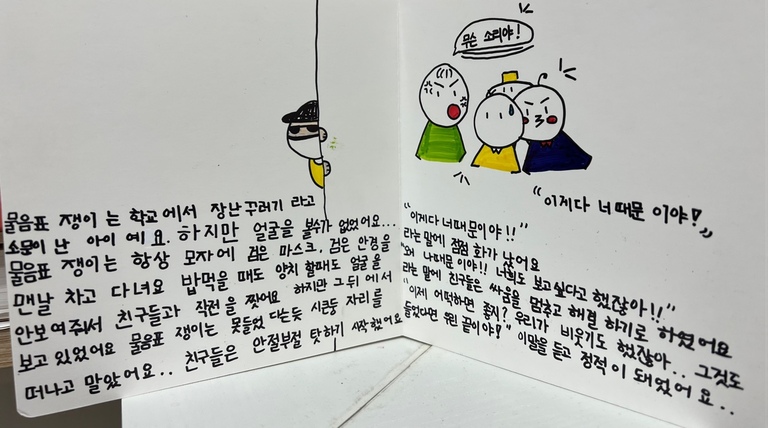 물음표 쟁이는 학교에서 장난꾸러기 라고
소문이 난 아이 예요. 하지만 얼굴을 볼수가 없었어요...
물음표 쟁이는 항상 모자에 검은 마스크. 검은 안경을
맨날 차고 다녀요 밥먹을 때도 양치 할때도 얼굴을
안보여줘서 친구들과 작전을 짰어요 하지만 그뒤 에서
보고 있었어요 물음표 쟁이는 못들었 다는듯 시큰둥 자리를
떠나고 말았어요.. 친구들은 안절부절 탓하기 시작 했어요
무슨 소리야!
"이게다 너때문 이야!"
"이게다 너때문이야!!"
라는 말에 점점 화가 났어요
"왜 나때문이야!! 너희도 보고싶다고 했잖아!!"
라는 말에 친구들은 싸움을 멈추고 해결 하기로 하였어요
"이제 어떡하면 좋지? 우리가 비웃기도 했잖아.. 그것도
들었다면 우린 끝이야!" 이말을 듣고 정적이 돼었어요..